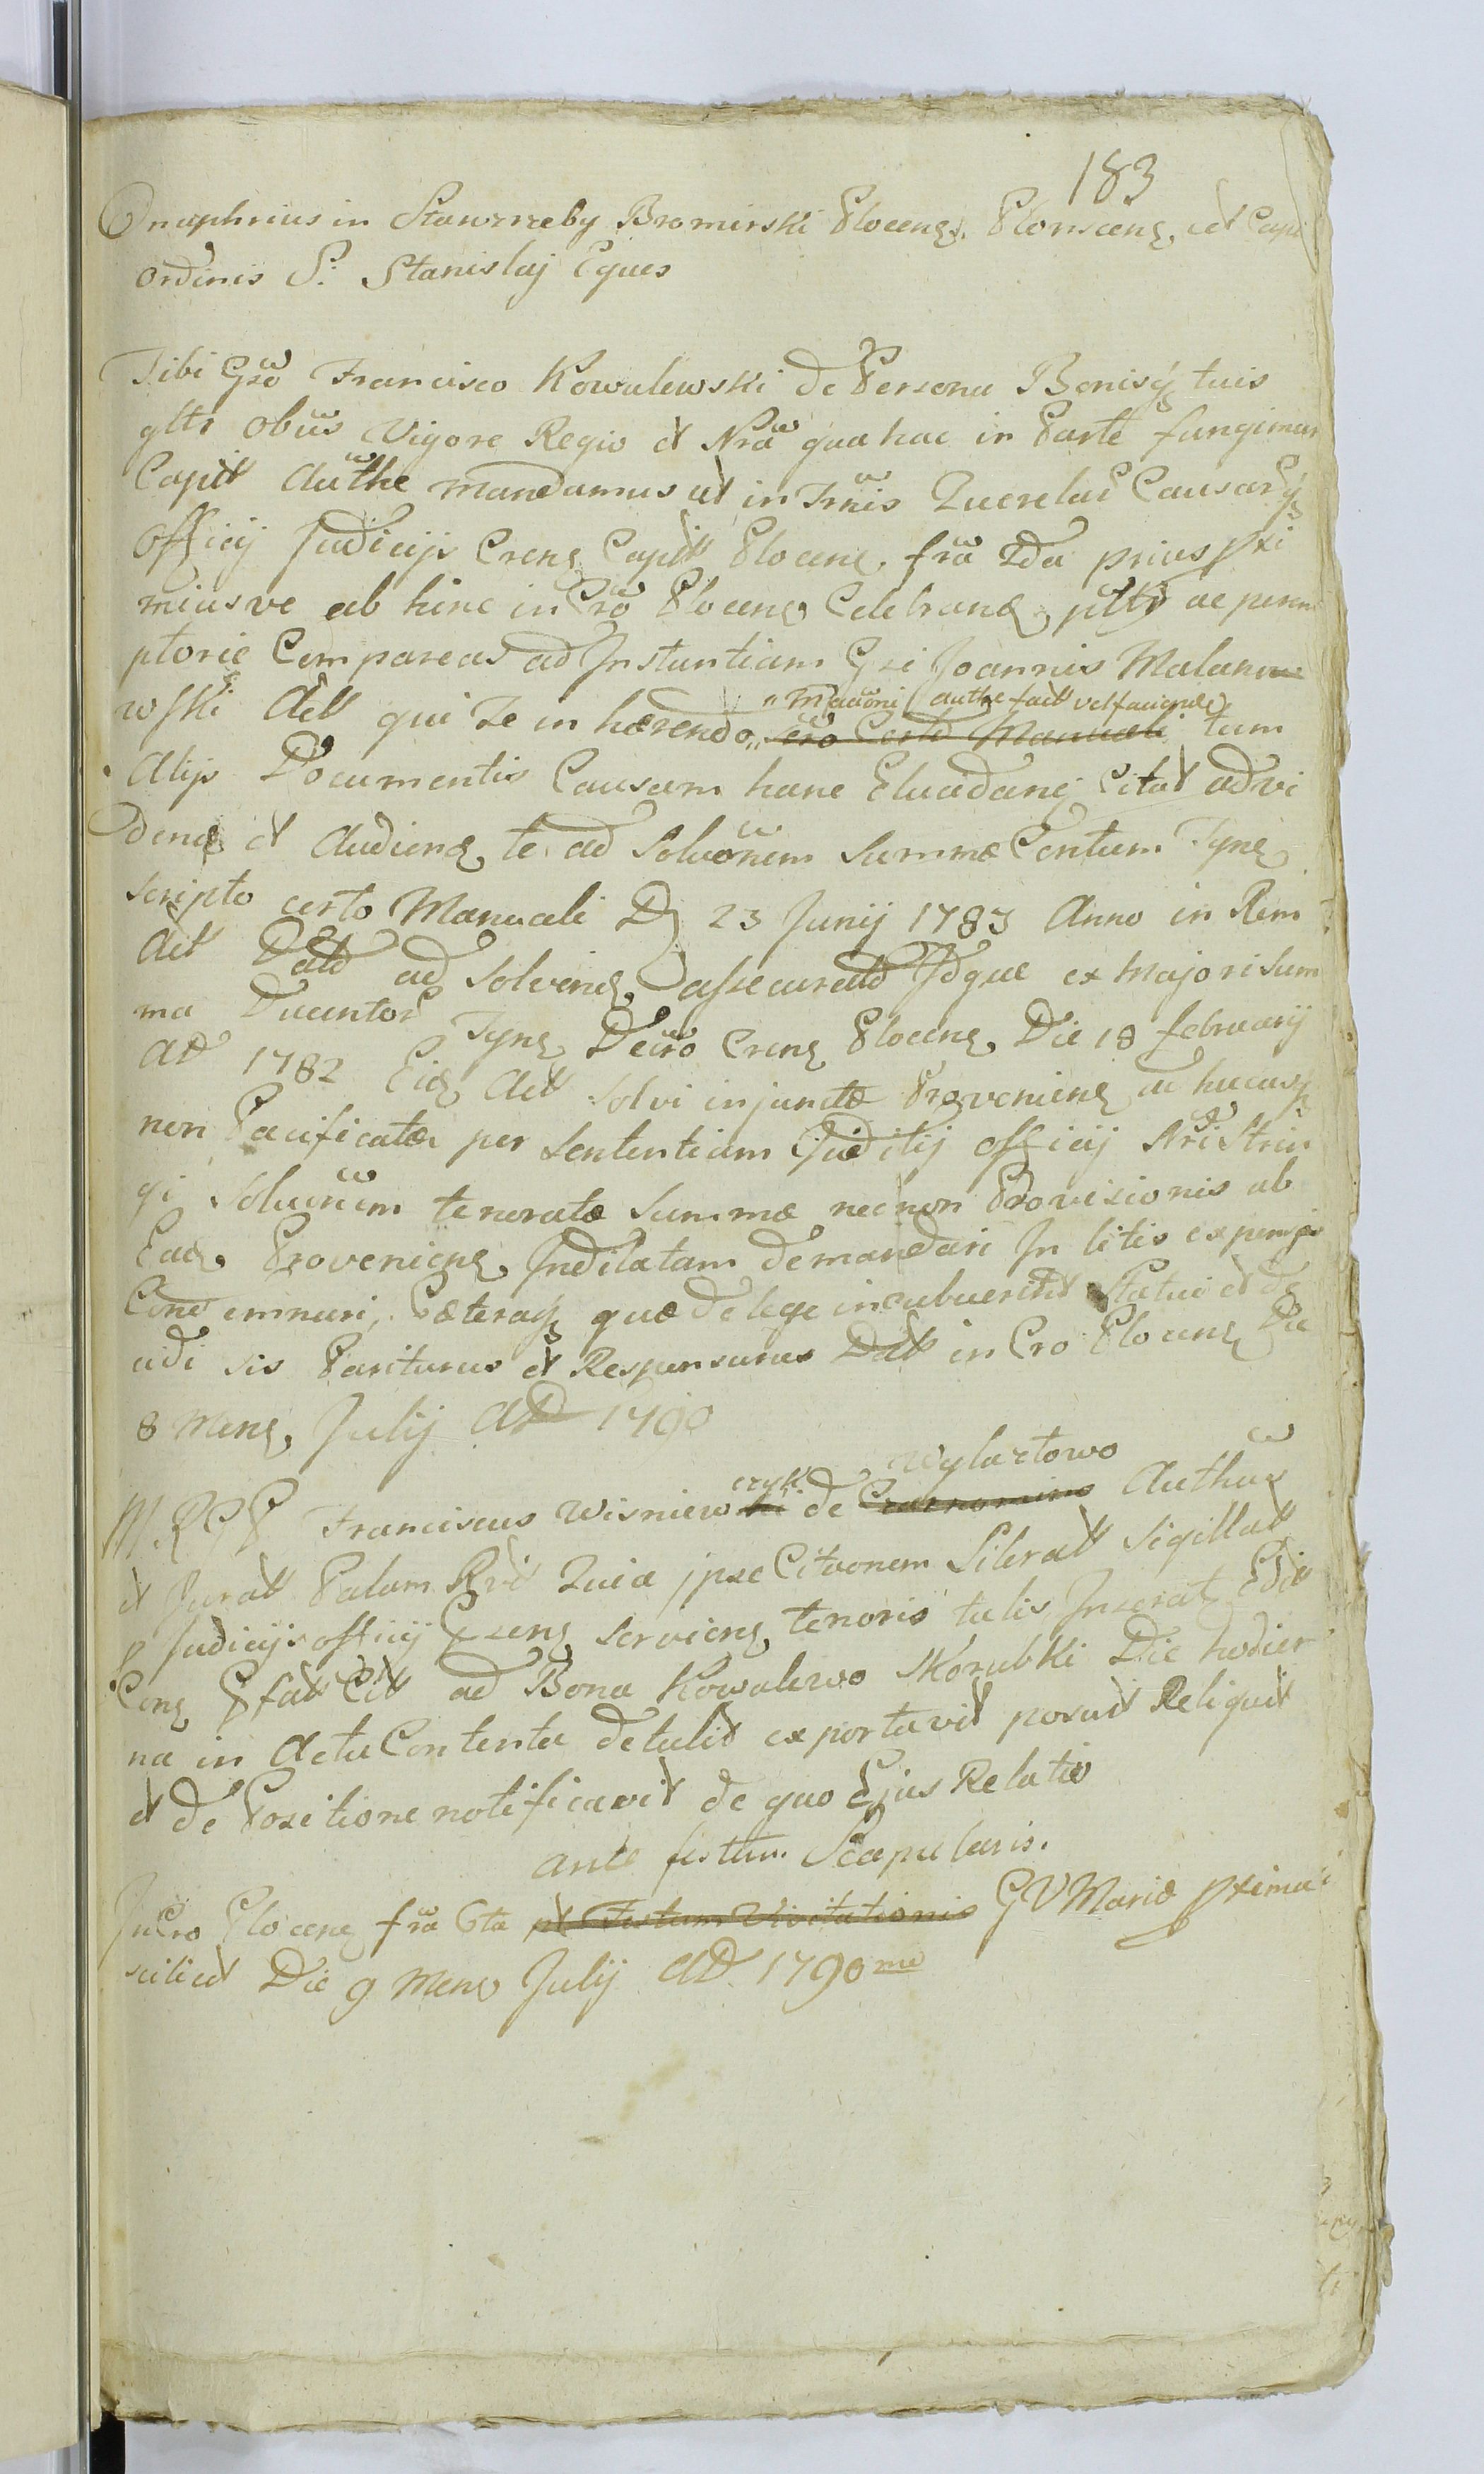 183
Onuphrius in Stawrzeby Bromirski Plocens. Plonscens. et Capit
Ordinis S: Stanislaj Eques
Tibi Gso Francisco Kowalewski de Persona Bonisq tuis
gltr obus Vigore Regio et Nra qua hac in Parte fungimur
Capit Authe mandamus ut in Trnis Querelar Causarq
Officij Judicijs Crens Capit Plocens. fra 2da prius pxi
miusve ab hinc in Cro Plocens Celebrand pltr ac perem
ptorie Compareas ad Instantiam Gsi Joannis Malano
wski Act qui Te in hærendo „ scro Certo Manuali tum
„ Maconi authe fact vel faciende
Alijs Documentis Causam hanc Elucidanj Citat ad vi
dend et Audiend te ad Soluonem Summæ Centum Tyns
scripto certo Manuali D 23 Junij 1783 Anno in Rem
Act Datd ad Solvend assecuratd Idque ex Majori Sum
ma Ducentor Tyns Decro Crens Plocens Die 18 februarij
AD 1782 Eid Act Solvi injunctæ Proveniens ac hucusq
non Pacificatæ per Sententiam Juditij officij Nri Strin
gi Soluonem teneratæ Summæ necnon Provisionis ab
Ead. Proveniens Indilatam demandari In litis expensis
Condemnari, Cæteraq quæ de lege incubuerint Statui et de
cidi sis Pariturus et Responsurus Dat in Cro Plocens Die
8 Mens. Julij AD 1790
Wylaztowo
czyk
M R C P Franciscus Wisniewski de Czarnomino Authus
et Jurat Palam Rvit Quia jpse Citaonem Literalt Sigillat
p Judicijs officij Csens serviens tenoris talis Inserat Edit
Cons Pfat Cit ad Bona Kowalewo Skorubki Die hodier
na in Actu Contenta detulit exportavit posuit Reliquit
et de Positione notificavit de quo Ejus Relatio
ante festum Scapularis.
In Cro Plocens fra 6ta pt Festum Visitationis G V Mariæ pxima
scilicet Die 9 Mens Julij AD 1790 mo